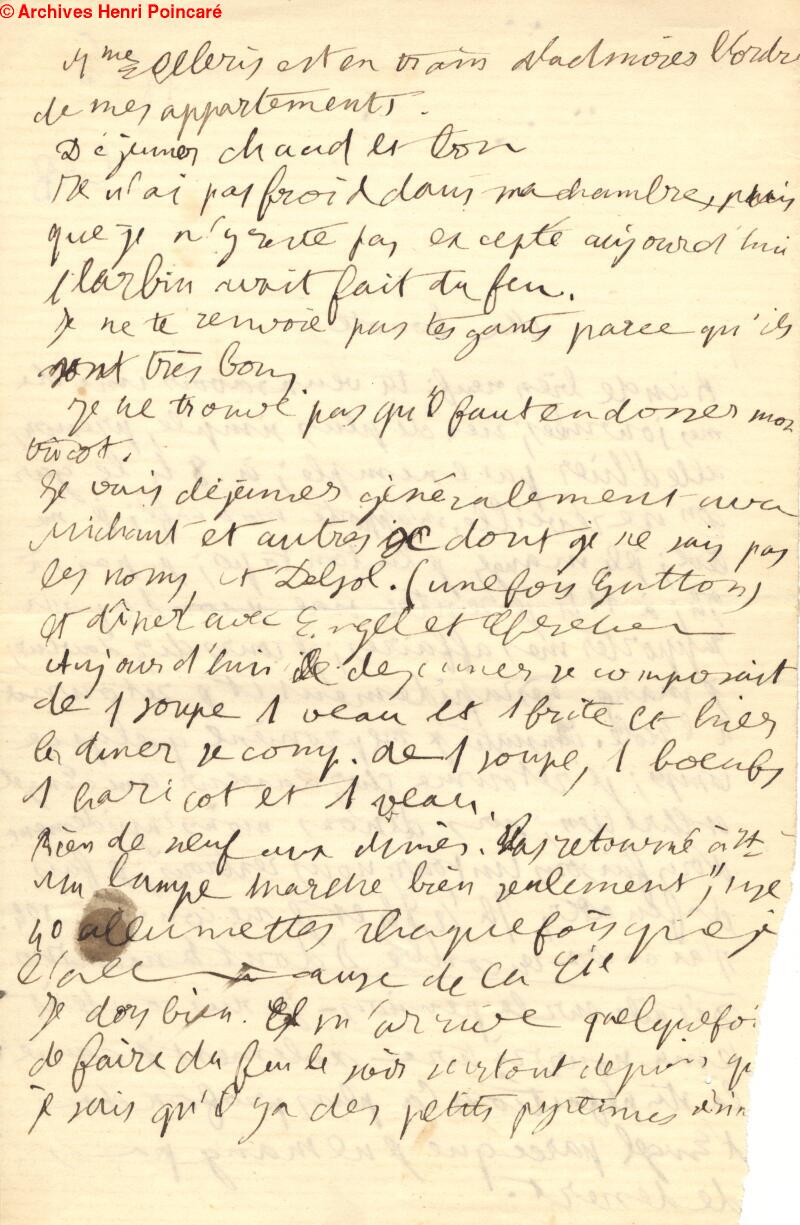 © Archives Henri Poincaré
Mme est en train d'admirer l'ordre
de mes appartements.
Déjeuner chaud et bon
Je n'ai pas froid dans ma chambre, puis
que je n'y reste pas excepté aujourd'hui
larbin avait fait du feu.
Je ne te renvoie pas tes gants parce qu'ils
sont très bons
Je ne trouve pas qu'il faut endosser mon
tricot.
Je vais déjeuner généralement avec
Michaut et autres dont je ne sais pas
les noms et Delsol. (une fois Gutton)
et dîner avec Engel et
Aujourd'hui le dejeuner se composait
de 1 soupe 1 veau et 1 frite et hier
le diner se comp. de 1 soupe, 1 boeufs
1 haricot et 1 veau.
Rien de neuf aux dînés. Pas retourné à
Ma lampe marche bien seulement j'use
40 allumettes chaque fois que j
l'all cause de la
Je dors bien. Il m'arrive quelquefoi
de faire du feu le soir surtout depuis qu
je sais qu'il y a des petits